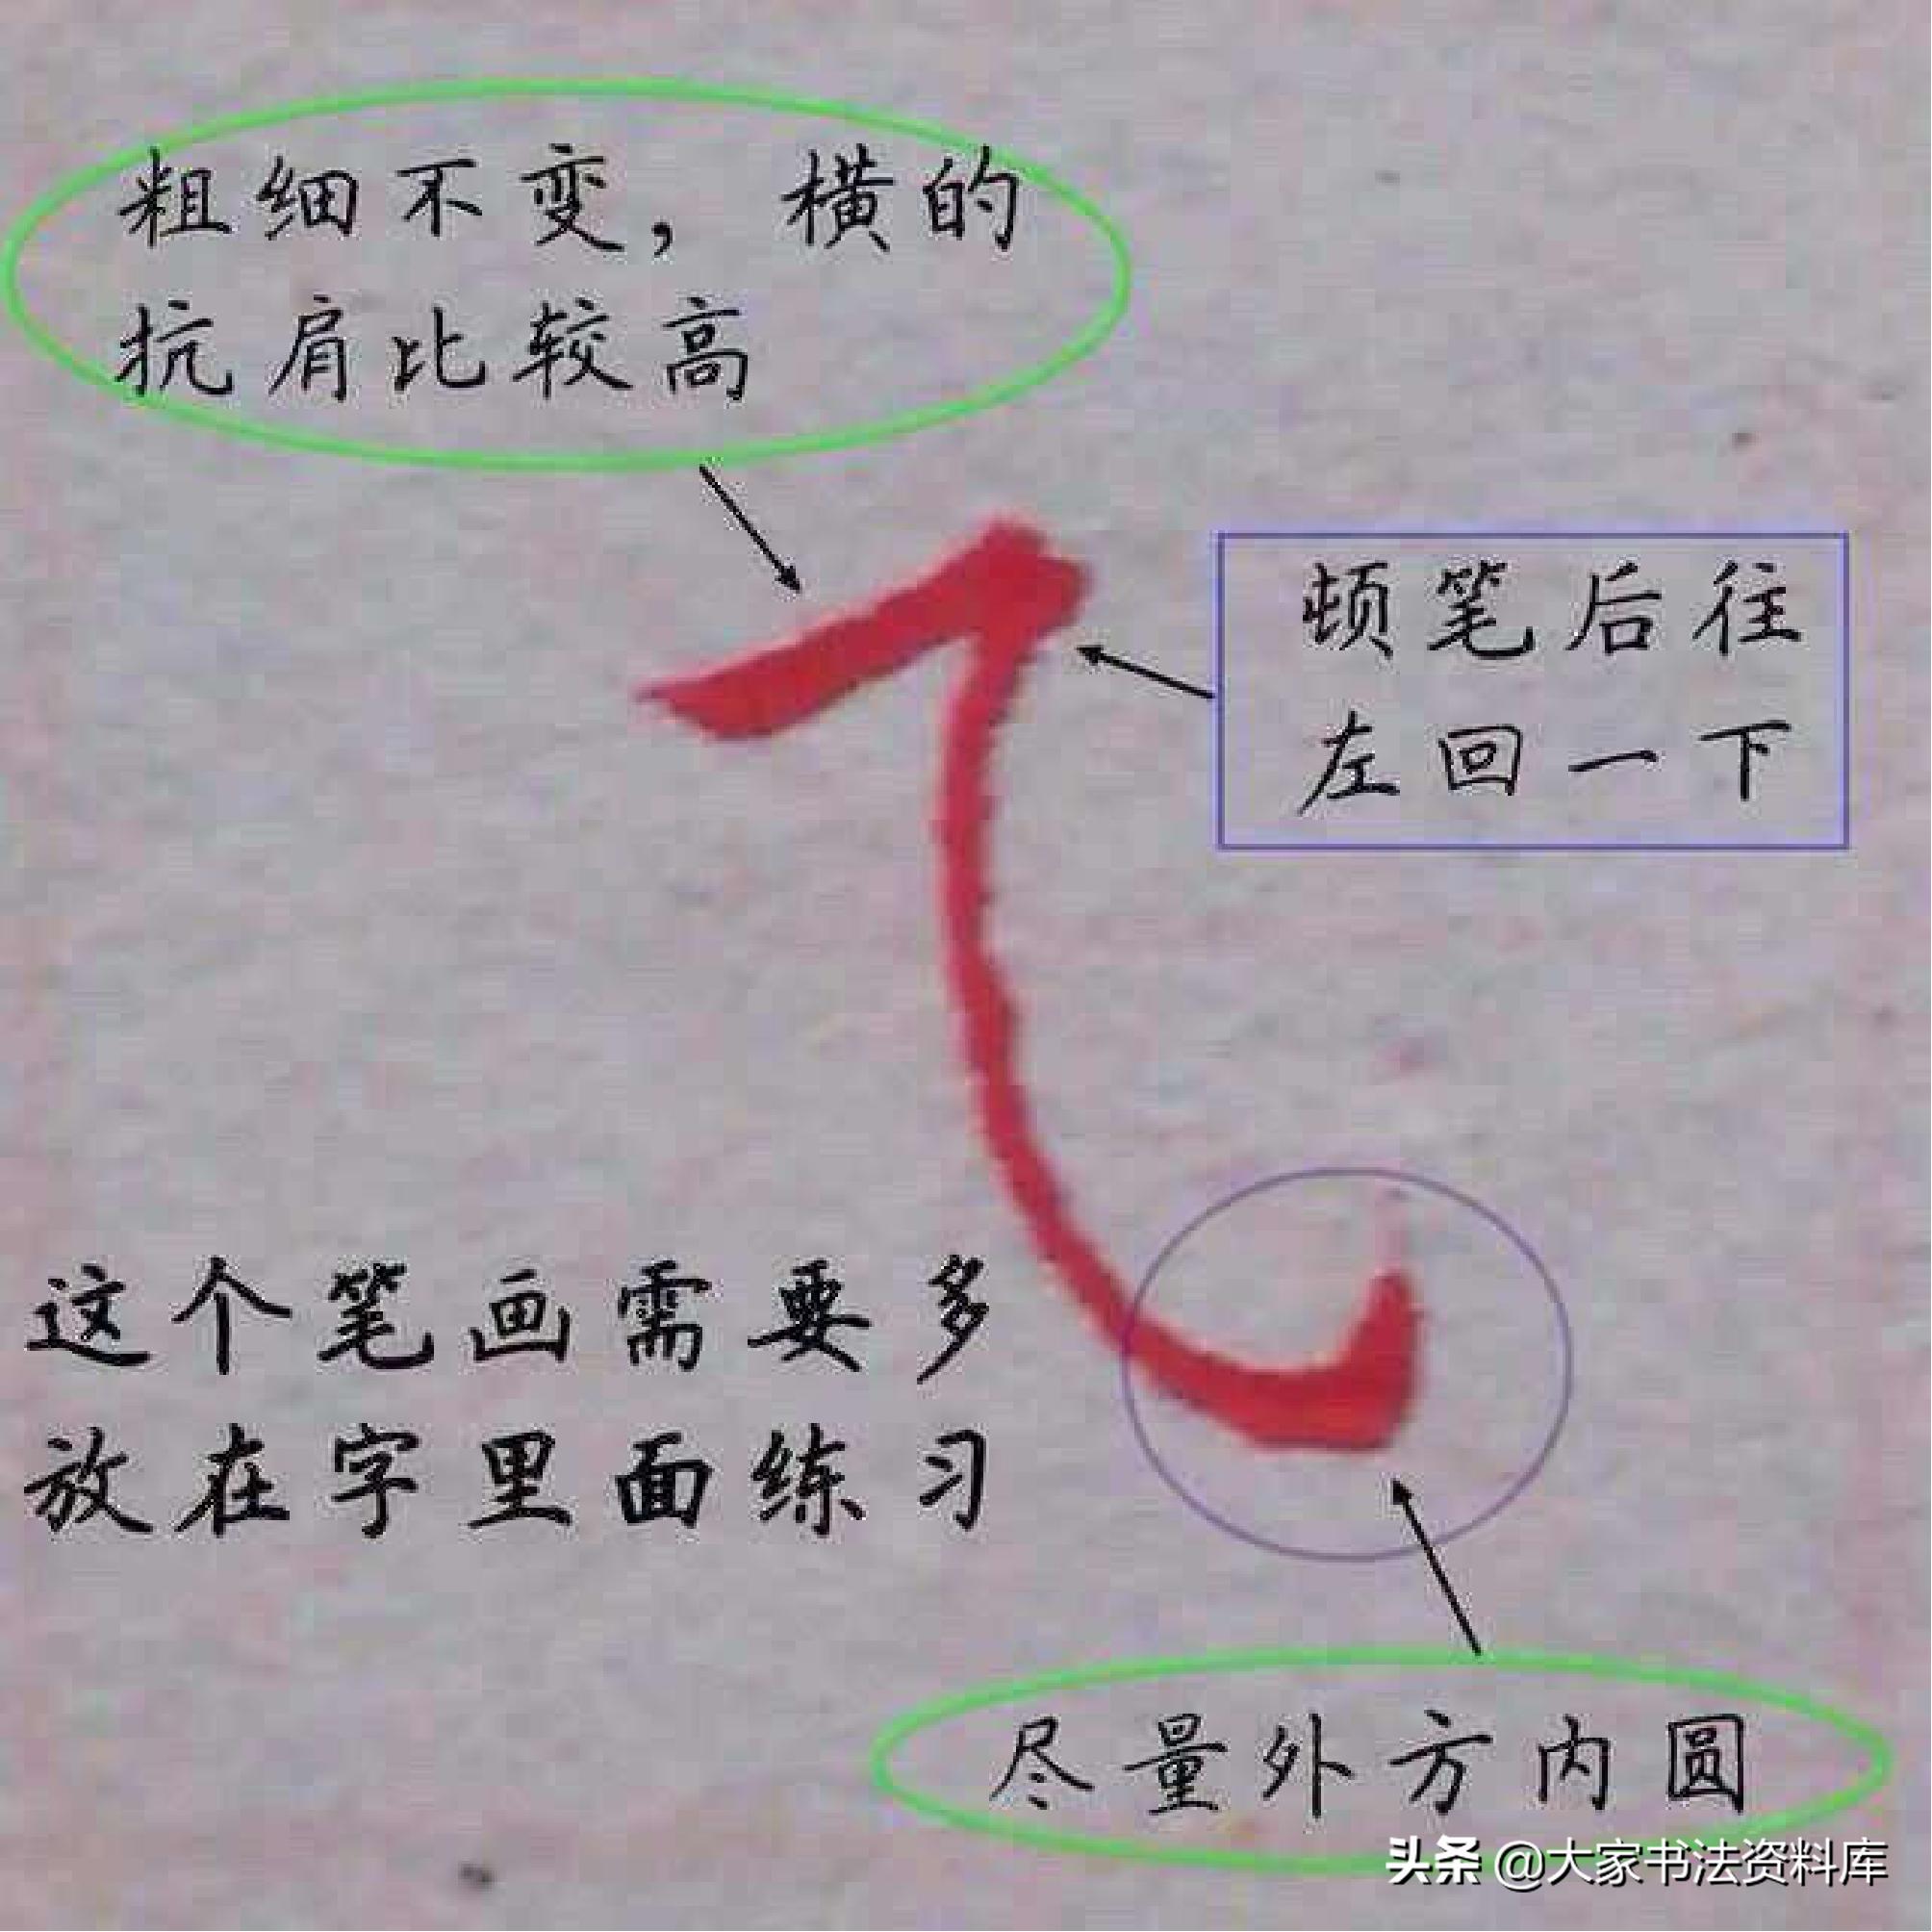 粗细不变，横的
抗肩比较高
顿笔后往
左回一下
这个笔画需要多
放在字里面练习
尽量外方内圆
头条 @大家书法资料库